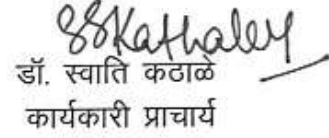 SSKathaley
डॉ. स्वाति कठाळे
कार्यकारी प्राचार्य